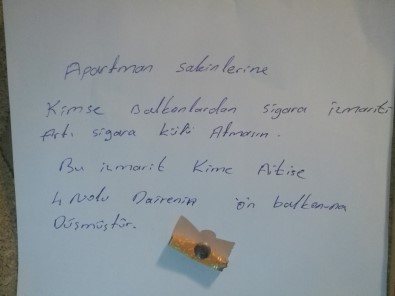 Apartman sakinlerine
Kimse Balkonlardan sigara izmariti
Artı sigara külü Atmasın.
Bu izmarit Kime Aitise
4 Nolu Dairenin ön balkonuna
Düşmüştür.